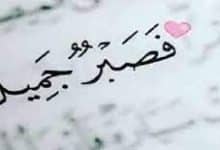 فَصَبْرٌ جَمِيل